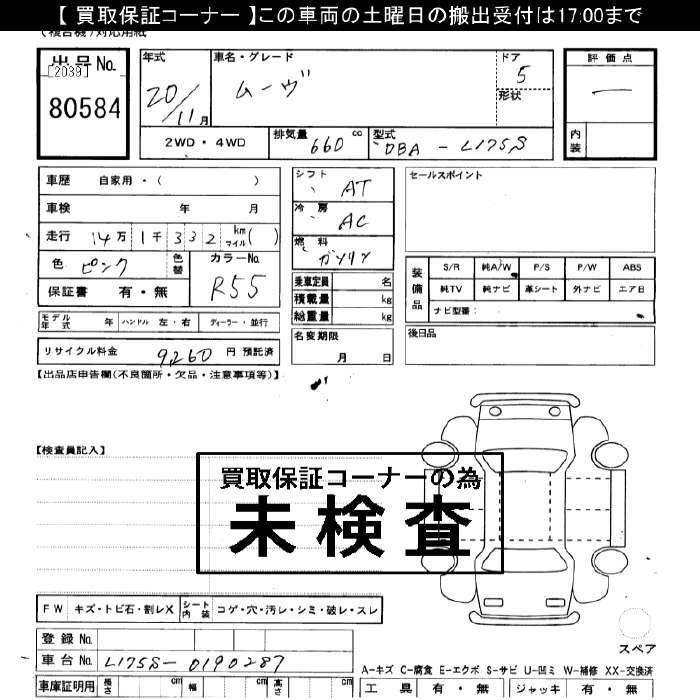 【 買取保証コーナー 】この車両の土曜日の搬出受付は17:00まで
(複合機)対応用紙
出品No.
[2039]
80584
年式
20/11月
車名・グレード
ムーヴ
ドア
5
形状
評価点
―
内装
2WD・4WD
排気量 660 cc
型式 DBA - L175S
車歴 自家用・( )
車検 年 月
走行 14万 1千 3 3 2 km マイル ( )
色 ピンク
色替
カラーNo.
R55
保証書 有・無
シフト AT
冷房 AC
燃料 ガソリン
乗車定員 名
積載量 kg
総重量 kg
セールスポイント
装備品
S/R 純A/W P/S P/W ABS
純TV 純ナビ 革シート 外ナビ エア日
ナビ型番:
モデル年式 年 ハンドル 左・右 ディーラー・並行
名変期限
月 日
後日品
リサイクル料金 9,260 円 預託済
【出品店申告欄(不良箇所・欠品・注意事項等)】
【検査員記入】
買取保証コーナーの為
未検査
FW キズ・トビ石・割レX シート内装 コゲ・穴・汚レ・シミ・破レ・スレ
登録No.
スペア
車台No. L175S-0190287
A-キズ C-腐食 E-エクボ S-サビ U-凹ミ W-補修 XX-交換済
車庫証明用 長さ cm 幅 cm 高さ cm
工具 有・無 ジャッキ 有・無